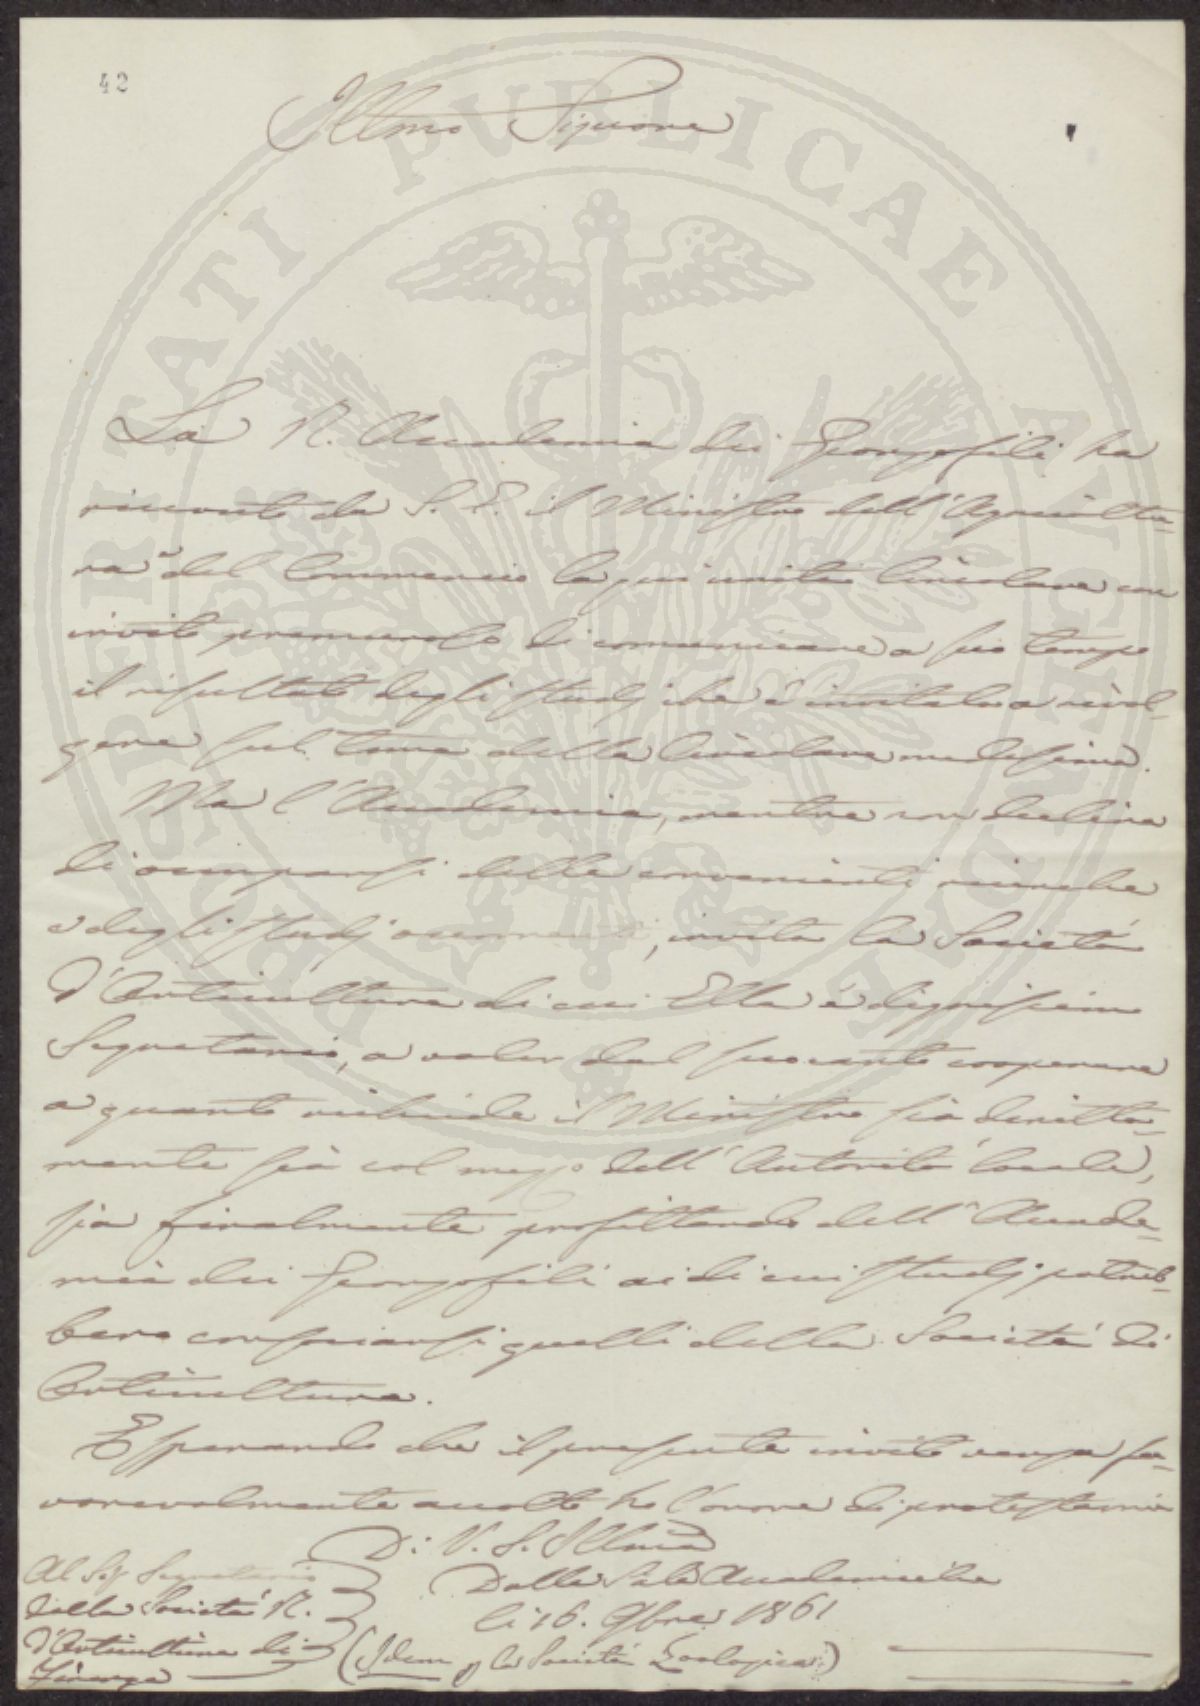 42
Illmo Signore
La R. Accademia dei Georgofili ha
ricevuto da S. E. il Ministro dell'Agricoltu-
ra e del Commercio la qui unita Circolare con
invito premuroso di comunicare a suo tempo
il risultato degli studj che è invitata a rivol-
gere sul tema della Circolare medesima.
Ma l'Accademia, mentre non declina
di occuparsi delle convenienti ricerche
e degli studj occorrenti, invita la Società
d'Orticultura di cui Ella è dignissimo
Segretario, a voler dal suo canto cooperare
a quanto richiede il Ministro sia diretta-
mente sia col mezzo dell'Autorità locale,
sia finalmente profittando dell'Accade-
mia dei Georgofili ai di cui studj potreb-
bero consociarsi quelli della Società di
Orticultura.
Esperando che il presente invito venga fa-
vorevolmente accolto ho l'onore di protestarmi
Di V. S. Illma
Dalle Sale Accademiche
li 16. 9bre 1861
Al Sig Segretario
della Società R.
d'Orticultura di
Firenze
(Idem p la Società Zoologica)
PROSPERITATI PVBLICAE AVGENDAE